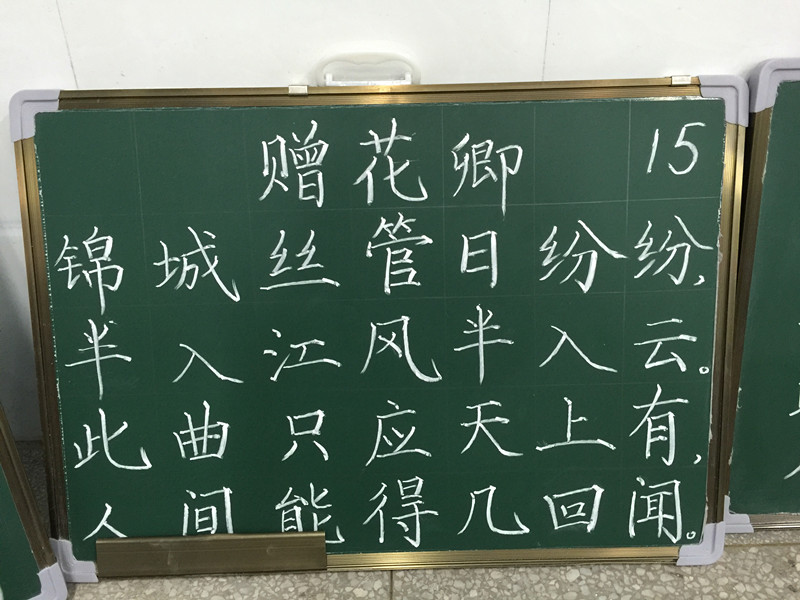 赠花卿 15
锦城丝管日纷纷,
半入江风半入云。
此曲只应天上有,
人间能得几回闻。